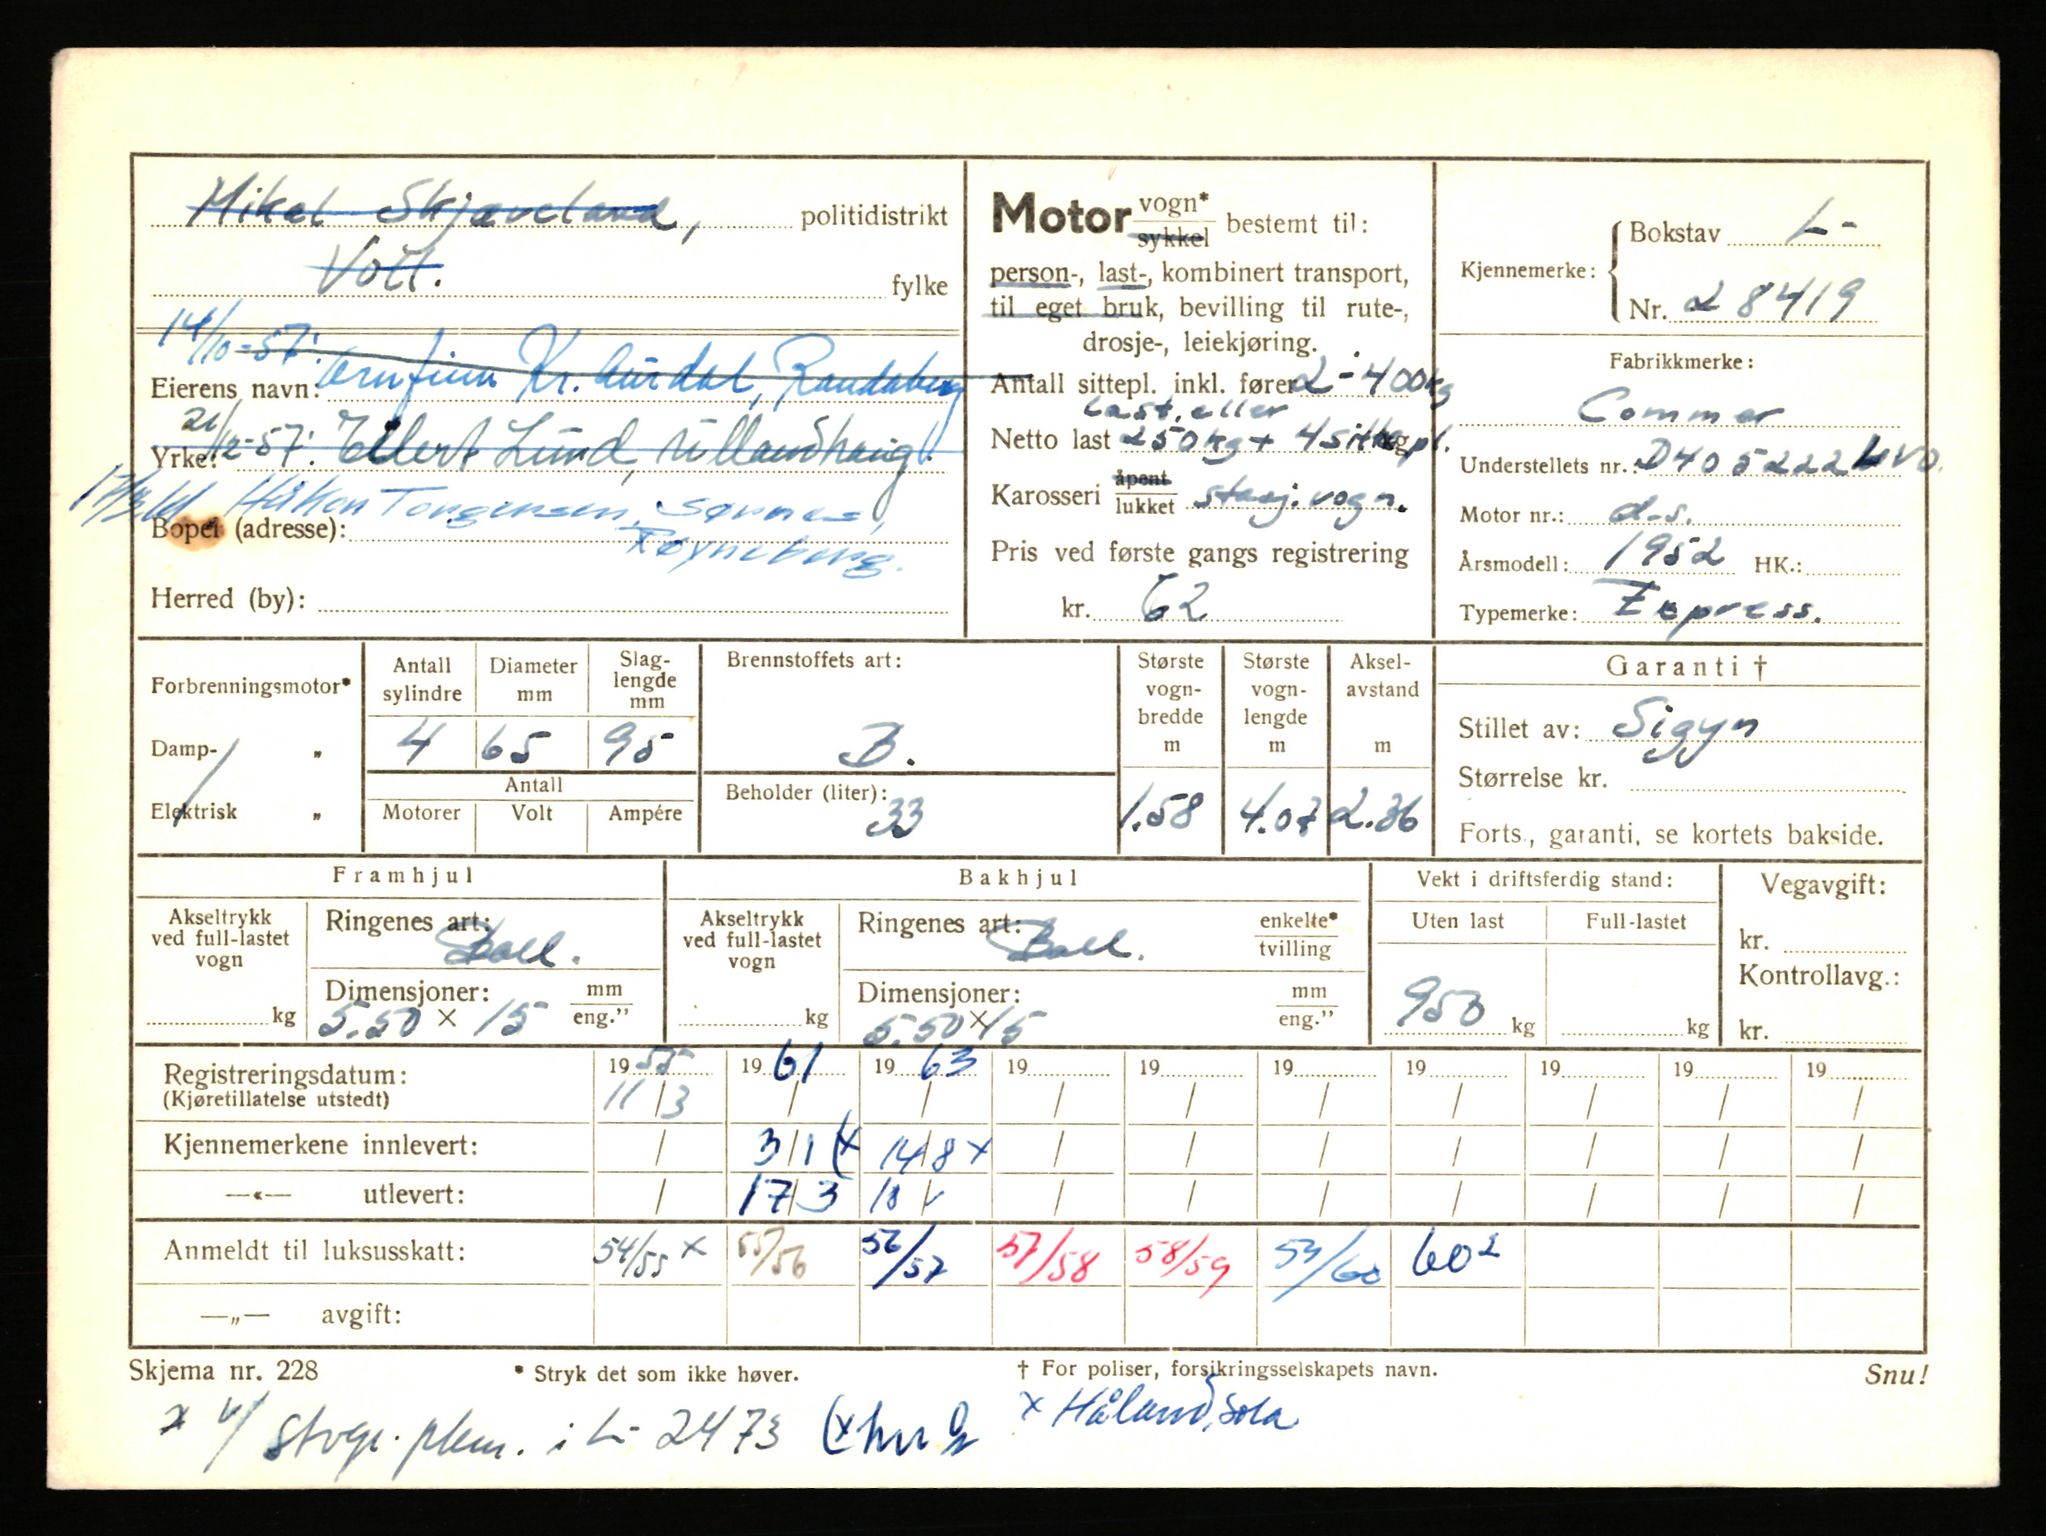 Mikal Skjæveland, politidistrikt
Voll. fylke
14/10-57: Arnfinn Kr. Aurdal, Randaberg
Eierens navn:
21/12-57: Ellert Lund, Ullandhaug.
Yrke:
17/3-61 Håkon Torgersen, Sømme,
Bopel (adresse): Røyneberg.
Herred (by):
Motor vogn* sykkel bestemt til:
person-, last-, kombinert transport,
til eget bruk, bevilling til rute-,
drosje-, leiekjøring.
Antall sittepl. inkl. fører 2 - 400 kg
last. eller
Netto last 250 kg + 4 sitte kg pl.
Karosseri åpent lukket stasj. vogn.
Pris ved første gangs registrering
kr. 62
Kjennemerke: Bokstav L-
Nr. 28419
Fabrikkmerke:
Commer
Understellets nr.: D405222LVO.
Motor nr.: d.s.
Årsmodell: 1952 HK.:
Typemerke: Express.
Forbrenningsmotor*
Damp- „
Elektrisk „
Antall sylindre Diameter mm Slag-lengde mm
4 65 95
Antall
Motorer Volt Ampére
Brennstoffets art:
B.
Beholder (liter):
33
Største vogn-bredde m
1.58
Største vogn-lengde m
4.07
Aksel-avstand m
2.36
Garanti †
Stillet av: Sigyn
Størrelse kr.
Forts., garanti, se kortets bakside.
Framhjul
Akseltrykk ved full-lastet vogn
kg
Ringenes art: Ball.
Dimensjoner: mm eng.”
5.50 × 15
Bakhjul
Akseltrykk ved full-lastet vogn
kg
Ringenes art: Ball. enkelte* tvilling
Dimensjoner: mm eng.”
5.50 × 15
Vekt i driftsferdig stand:
Uten last Full-lastet
953 kg kg
Vegavgift:
kr.
Kontrollavg.:
kr.
Registreringsdatum: 19 55 19 61 19 63 19 19 19 19 19 19 19
(Kjøretillatelse utstedt) 11/3 / / / / / / / / /
Kjennemerkene innlevert: / 3/1 (x 14/8 x / / / / / / /
—«— utlevert: / 17/3 18 / / / / / / / /
Anmeldt til luksusskatt: 54/55 x 55/56 56/57 57/58 58/59 59/60 60²
—„— avgift:
Skjema nr. 228 * Stryk det som ikke høver. † For poliser, forsikringsselskapets navn. Snu!
x i L- 2473 x Håland, Sola